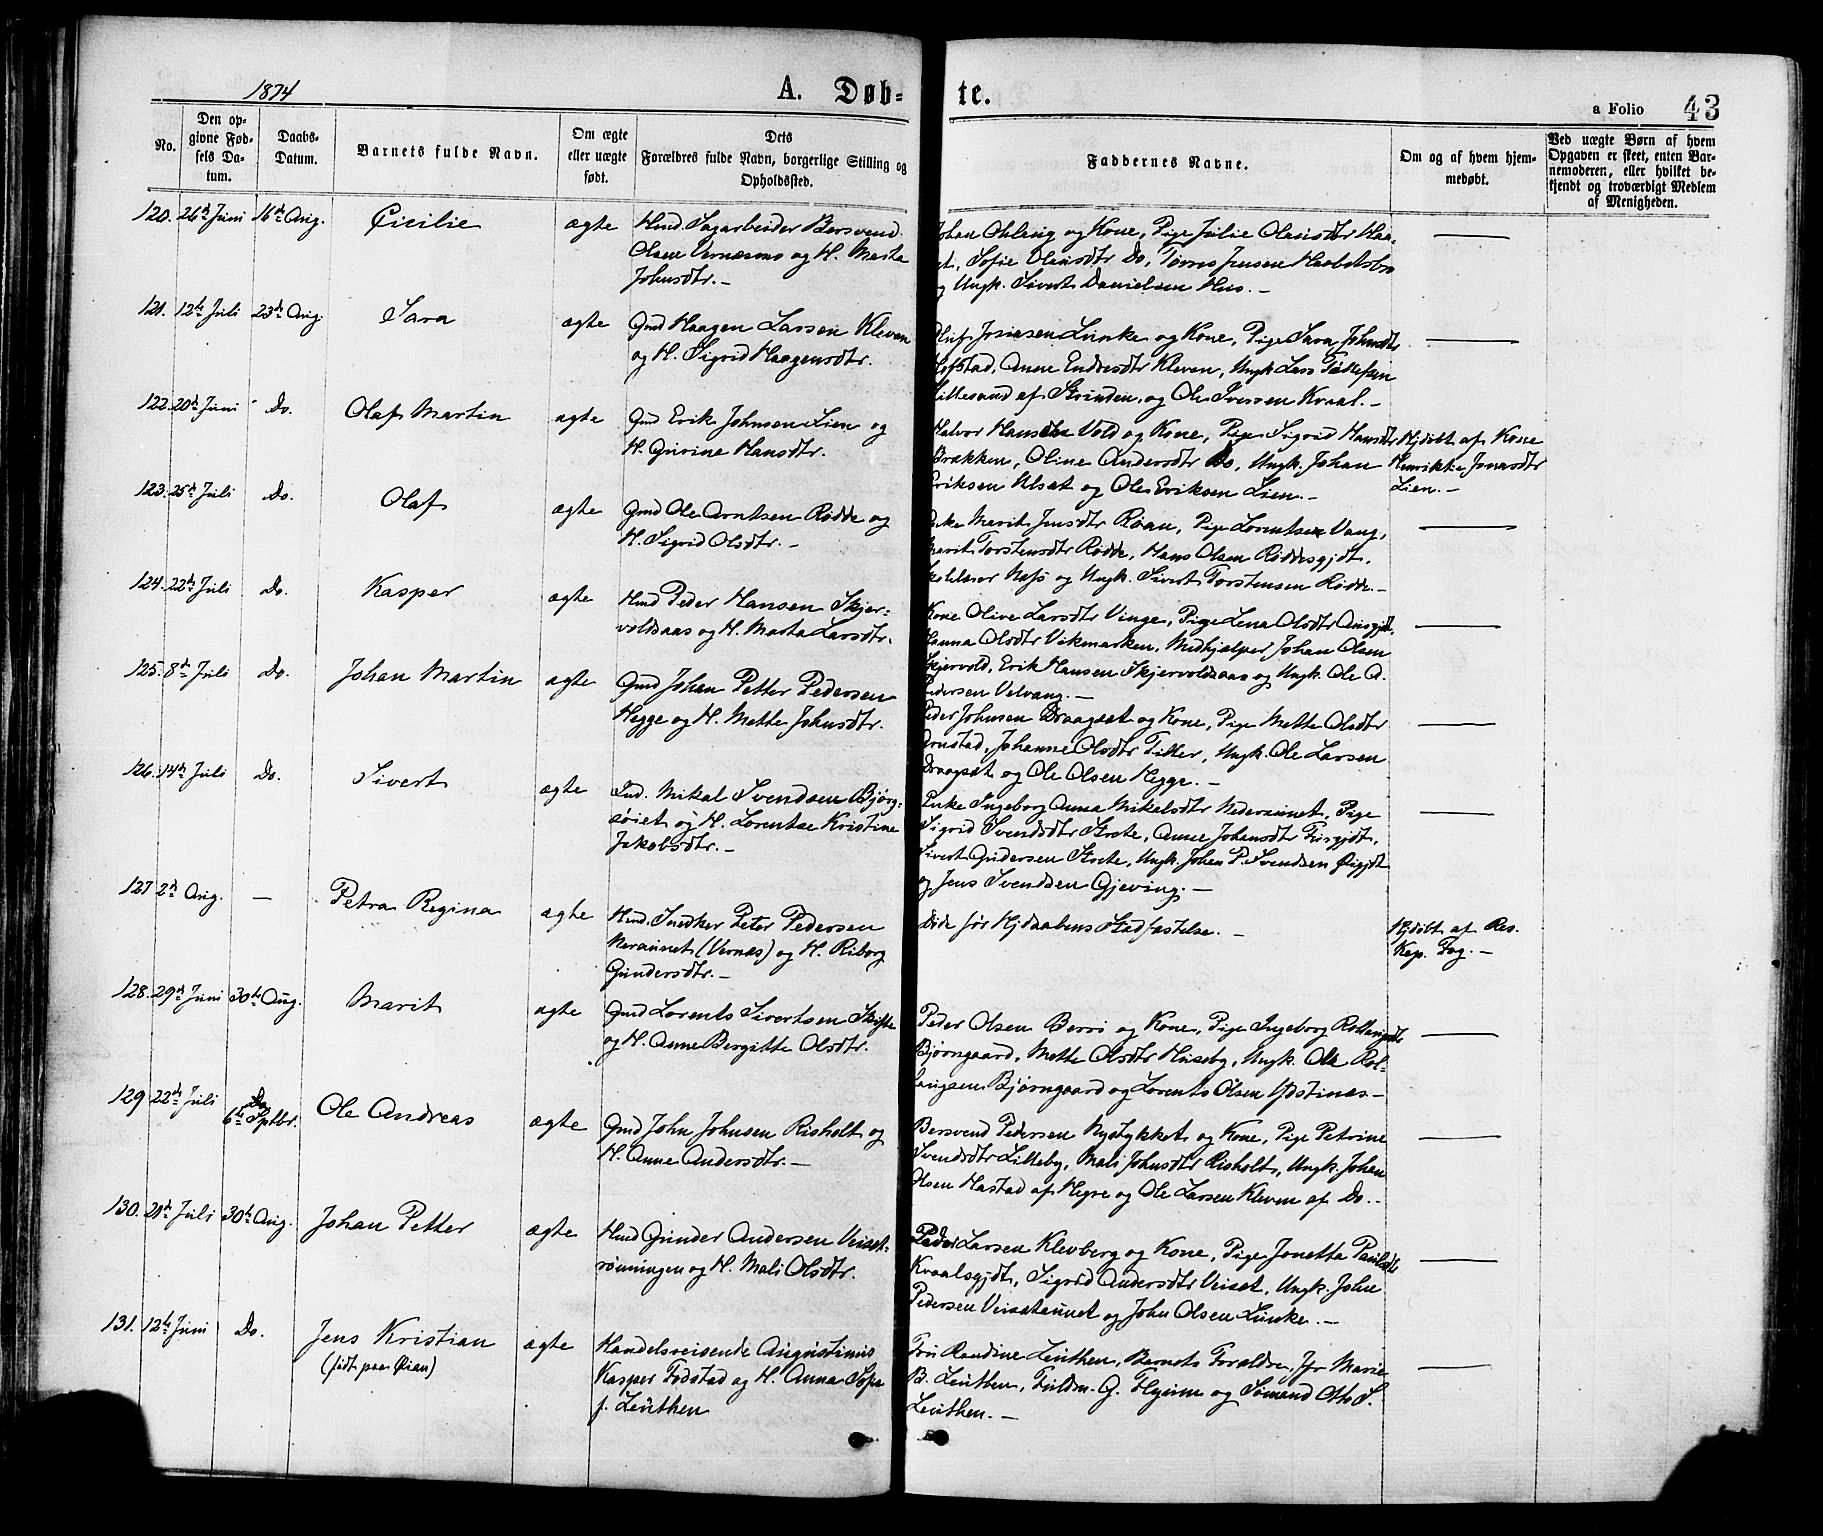 1874
A. Døb-
te.
a Folio 43
No.
Den op-
givne Fød-
sels Da-
tum.
Daabs-
Datum.
Barnets fulde Navn.
Om ægte
eller uægte
født.
Dets
Forældres fulde Navn, borgerlige Stilling og
Opholdssted.
Faddernes Navne.
Om og af hvem hjem-
medøbt.
Ved uægte Børn af hvem
Opgaven er skeet, enten Bar-
nemoderen, eller hvilket be-
kjendt og troværdigt Medlem
af Menigheden.
120. 26de Juni 16de Aug. Cicilie ægte Hmd. Sagarbeider Bersvend
Olsen Vernæsmo og H. Marta
Johnsdtr. —
Johan Ohling og Kone, Pige Julie Olausdtr
Sofie Olausdtr Do, Jensen
Ungk. Sivert Danielsen Hus. —
121. 12te Juli 23de Aug. Sara ægte Gmd Haagen Larsen Kleven
og H. Sigrid Haagensdtr.
Josiasen Lunke og Kone, Pige Sara Johnsdtr
Hofstad, Anne Endresdtr Kleven, Ungk. Lars Tollefsen
Lillesand af Strinden, og Ole Iversen Kvaal. —
122. 20de Juni Do. Olaf Martin ægte Gmd Erik Johnsen Lien og
H. Gurine Hansdtr.
Halvor Hansen Vold og Kone, Pige Sigrid Hansdtr
Brækken, Oline Andersdtr Do, Ungk. Johan
Eriksen Ulset og Ole Eriksen Lien. —
Hjdøbt af Kone
Henrikke Jonasdtr
Lien. —
123. 25de Juli Do. Olaf ægte Gmd Ole Arntsen Rødde og
H. Sigrid Olsdtr. —
Enke Marit Jensdtr Roan, Pige Lorentse Vang,
Marit Torstensdtr Rødde, Hans Olsen Røddesgjdt,
og Ungk. Sivert Torstensen Rødde. —
124. 22de Juli Do. Kasper ægte Hmd Peder Hansen Skjer-
voldsaas og H. Marta Larsdtr.
Kone Olive Larsdtr Vinge, Pige Lena Olsdtr
Hanna Olsdtr Vikmarken, Medhjælper Johan Olsen
Skjervold, Erik Hansen Skjervoldsaas og Ungk. Ole A.
Pedersen Velvang. —
125. 8de Juli Do. Johan Martin ægte Gmd Johan Petter Pedersen
Hegge og H. Mette Johnsdtr.
Peder Johnsen Draagset og Kone, Pige Mette Olsdtr
Arnstad, Johanne Olsdtr Tiller, Ungk. Ole Larsen
Draagset og Ole Olsen Hegge. —
126. 14de Juli Do. Sivert ægte Ind. Mikal Svendsen Bjørg-
søiet og H. Lorentse Kristine
Jakobsdtr. —
Enke Ingeborg Anna Mikelsdtr Nederaunet, Pige
Sigrid Svendsdtr Strete, Anne Johansdtr
Sivert Gundersen Strete, Ungk. Johan P. Svendsen
og Jens Svendsen Gjeving. —
127 2de Aug. — Petra Regina ægte Hmd. Snedker Peter Pedersen
Neraunet (Vernæs) og H. Riborg
Gundersdtr. —
Døde før Hjdaabens Stadfæstelse. —
Hjdøbt af Res.
Kap. Fog. —
128. 29de Juni 30te Aug. Marit ægte Gmd Lorents Sivertsen Skifte
og H. Anne Bergitte Olsdtr.
Peder Olsen Berri og Kone, Pige Ingeborg
Bjørngaard, Mette Olsdtr Huseby, Ungk. Ole Rol-
laugsen Bjørngaard og Lorents Olsen Ydstines —
129 22de Juli Do 6te Sptbr. Ole Andreas ægte Gmd John Johnsen Risholt og
H. Anne Andersdtr. —
Bersvend Pedersen Nystykket og Kone, Pige Petrine
Svendsdtr Lilleby, Mali Johnsdtr Risholt, Ungk. Johan
Olsen Hastad af Hegre og Ole Larsen Kleven af Do. —
130. 21de Juli 30te Aug. Johan Petter ægte Hmd Gunder Andersen Veiset-
rønningen og H. Mali Olsdtr.
Peder Larsen Klevberg og Kone, Pige Jonetta Paulsdtr
Kvaalsgjdt, Sigrid Andersdtr Veiset, Ungk. John
Pedersen Veisetaunet og John Olsen Lunke. —
131. 12te Juni Do. Jens Kristian
(født paa Øian)
ægte Handelsreisende Augustinus
Kasper Fostad og H. Anna Sofie
f. Leuthen
Fru Randine Leuthen, Barnets Forældre, Jfr Marie
B. Leuthen, Fuldm. G. og Sømand Otto S.
Leuthen. —